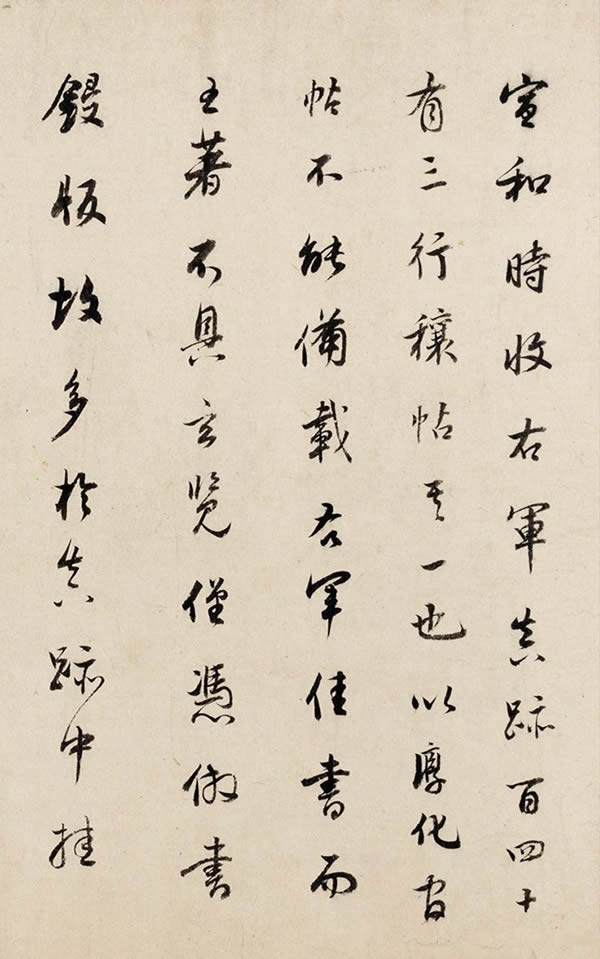 宣和時收右軍真跡百四十
有三行穰帖其一也以淳化官
帖不能備載右軍佳書而
王著不具玄覽僅憑倣書
鋟版故多於真跡中挂